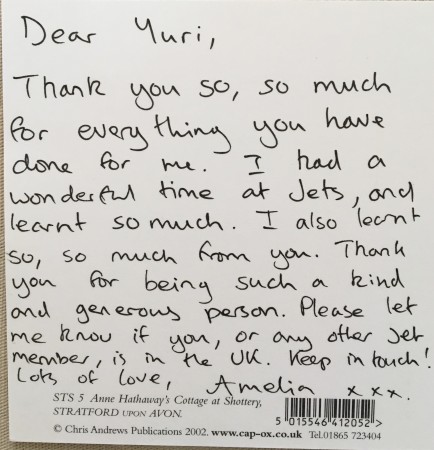 Dear Yuri,
Thank you so, so much
for everything you have
done for me. I had a
wonderful time at Jets, and
learnt so much. I also learnt
so, so much from you. Thank
you for being such a kind
and generous person. Please let
me know if you, or any other Jet
member, is in the UK. Keep in touch!
Lots of love, Amelia xxx.
STS 5 Anne Hathaway's Cottage at Shottery,
STRATFORD UPON AVON.
© Chris Andrews Publications 2002. www.cap-ox.co.uk Tel.01865 723404
5 015546 412052 >